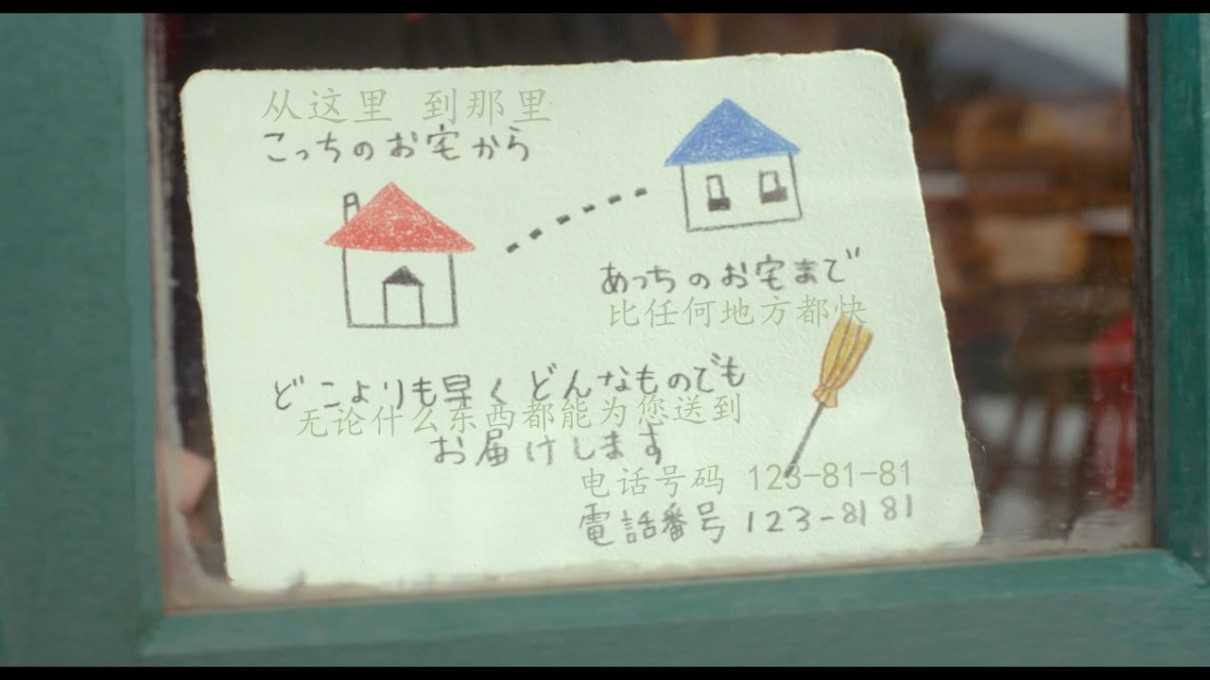 从这里 到那里
こっちのお宅から
あっちのお宅まで
比任何地方都快
どこよりも早くどんなものでも
无论什么东西都能为您送到
お届けします
电话号码 123-81-81
電話番号 123-8181